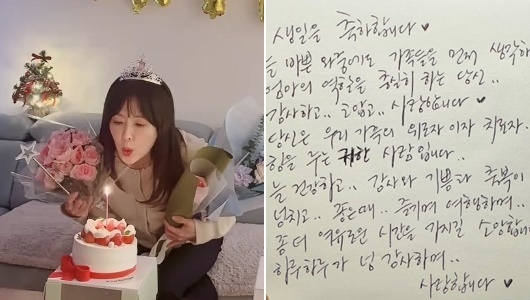 생일을 축하합니다 ♥
늘 바쁜 와중에도 가족들을 먼저 생각하
엄마의 역할을 충실히 하는 당신..
감사하고.. 고맙고.. 사랑합니다 ♥
당신은 우리 가족의 위로자 이자 치료자.
힘을 주는 귀한 사람입니다..
늘 건강하고.. 감사와 기쁨과 축복이
넘치고.. 좋은때.. 즐기며 여행하며..
좀 더 여유로운 시간을 가지길 소망합니다
하루하루가 넘 감사하며..
사랑합니다 ♥